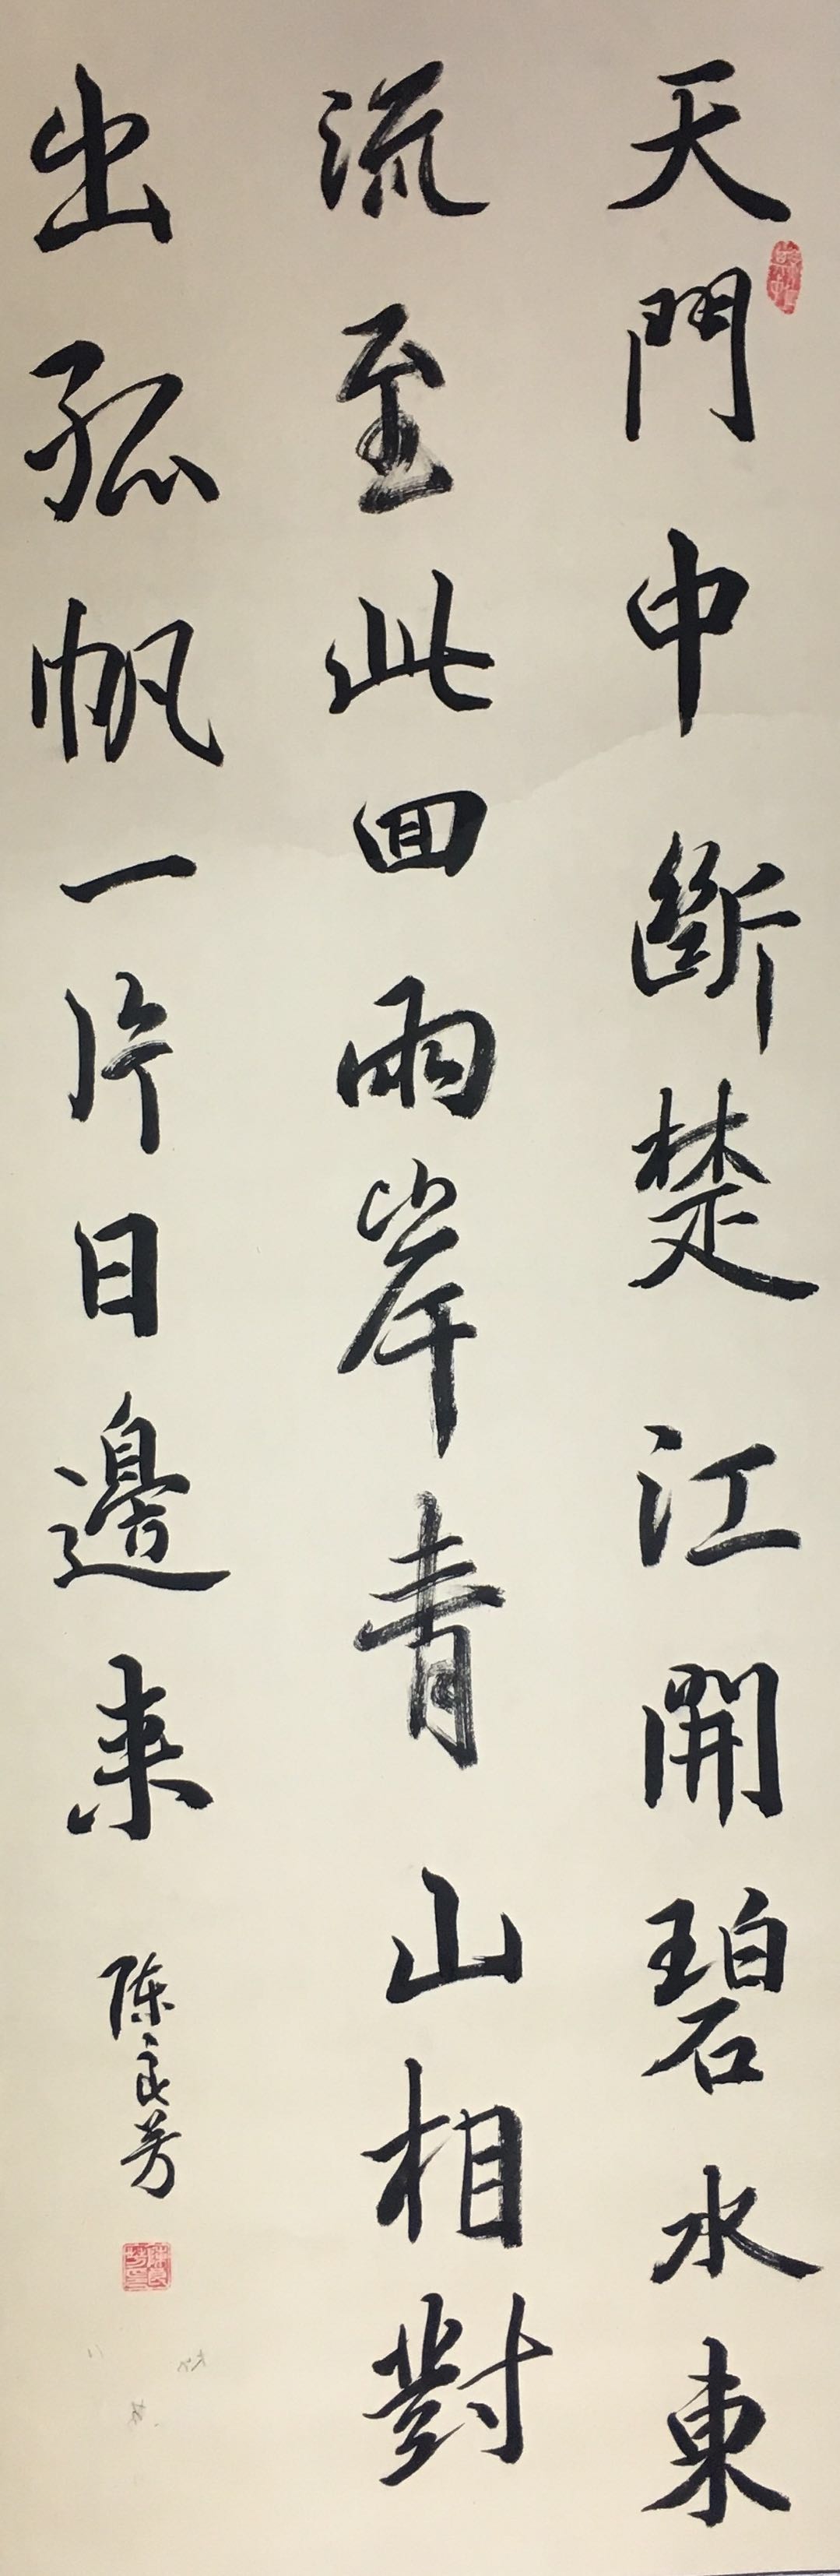 天門中斷楚江開碧水東
流至此回兩岸青山相對
出孤帆一片日邊来
陈良芳